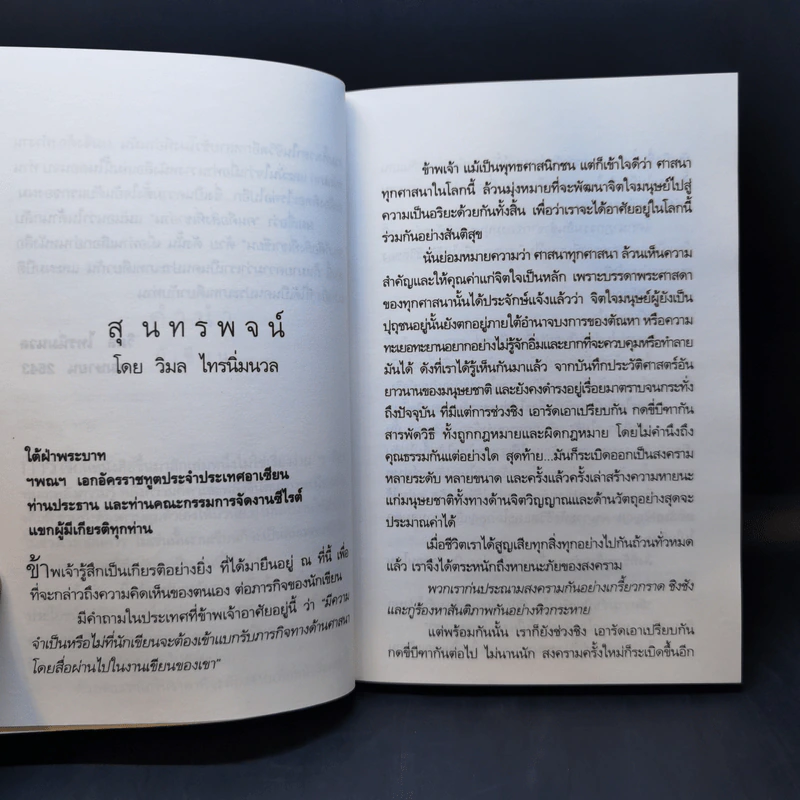 สุนทรพจน์
โดย วิมล ไทรนิ่มนวล
ใต้ฝ่าพระบาท
ฯพณฯ เอกอัครราชทูตประจำประเทศอาเซียน
ท่านประธาน และท่านคณะกรรมการจัดงานซีไรต์
แขกผู้มีเกียรติทุกท่าน
ข้าพเจ้ารู้สึกเป็นเกียรติอย่างยิ่ง ที่ได้มายืนอยู่ ณ ที่นี้ เพื่อ
ที่จะกล่าวถึงความคิดเห็นของตนเอง ต่อภารกิจของนักเขียน
มีคำถามในประเทศที่ข้าพเจ้าอาศัยอยู่นี้ ว่า “มีความ
จำเป็นหรือไม่ที่นักเขียนจะต้องเข้าแบกรับภารกิจทางด้านศาสนา
โดยสื่อผ่านไปในงานเขียนของเขา”
ข้าพเจ้า แม้เป็นพุทธศาสนิกชน แต่ก็เข้าใจดีว่า ศาสนา
ทุกศาสนาในโลกนี้ ล้วนมุ่งหมายที่จะพัฒนาจิตใจมนุษย์ไปสู่
ความเป็นอริยะด้วยกันทั้งสิ้น เพื่อว่าเราจะได้อาศัยอยู่ในโลกนี้
ร่วมกันอย่างสันติสุข
นั่นย่อมหมายความว่า ศาสนาทุกศาสนา ล้วนเห็นความ
สำคัญและให้คุณค่าแก่จิตใจเป็นหลัก เพราะบรรดาพระศาสดา
ของทุกศาสนานั้นได้ประจักษ์แจ้งแล้วว่า จิตใจมนุษย์ผู้ยังเป็น
ปุถุชนอยู่นั้นยังตกอยู่ภายใต้อำนาจบงการของตัณหา หรือความ
ทะเยอทะยานอยากอย่างไม่รู้จักอิ่มและยากที่จะควบคุมหรือทำลาย
มันได้ ดังที่เราได้รู้เห็นกันมาแล้ว จากบันทึกประวัติศาสตร์อัน
ยาวนานของมนุษยชาติ และยังคงดำรงอยู่เรื่อยมาตราบจนกระทั่ง
ถึงปัจจุบัน ที่มีแต่การช่วงชิง เอารัดเอาเปรียบกัน กดขี่บีฑากัน
สารพัดวิธี ทั้งถูกกฎหมายและผิดกฎหมาย โดยไม่คำนึงถึง
คุณธรรมกันแต่อย่างใด สุดท้าย...มันก็ระเบิดออกเป็นสงคราม
หลายระดับ หลายขนาด และครั้งแล้วครั้งเล่าสร้างความหายนะ
แก่มนุษยชาติทั้งทางด้านจิตวิญญาณและด้านวัตถุอย่างสุดจะ
ประมาณค่าได้
เมื่อชีวิตเราได้สูญเสียทุกสิ่งทุกอย่างไปกันถ้วนทั่วหมด
แล้ว เราจึงได้ตระหนักถึงหายนะภัยของสงคราม
พวกเราก่นประณามสงครามกันอย่างเกรี้ยวกราด ชิงชัง
และกู่ร้องหาสันติภาพกันอย่างหิวกระหาย
แต่พร้อมกันนั้น เราก็ยังช่วงชิง เอารัดเอาเปรียบกัน
กดขี่บีฑากันต่อไป ไม่นานนัก สงครามครั้งใหม่ก็ระเบิดขึ้นอีก